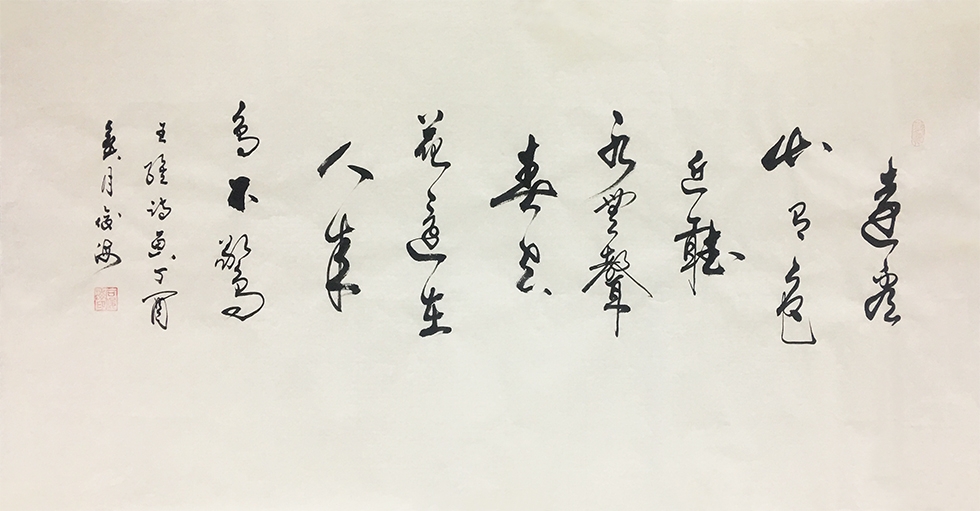 遠看
山有色
近聽
水無聲
春去
花還在
人來
鳥不驚
王維詩畫丁酉
月 海